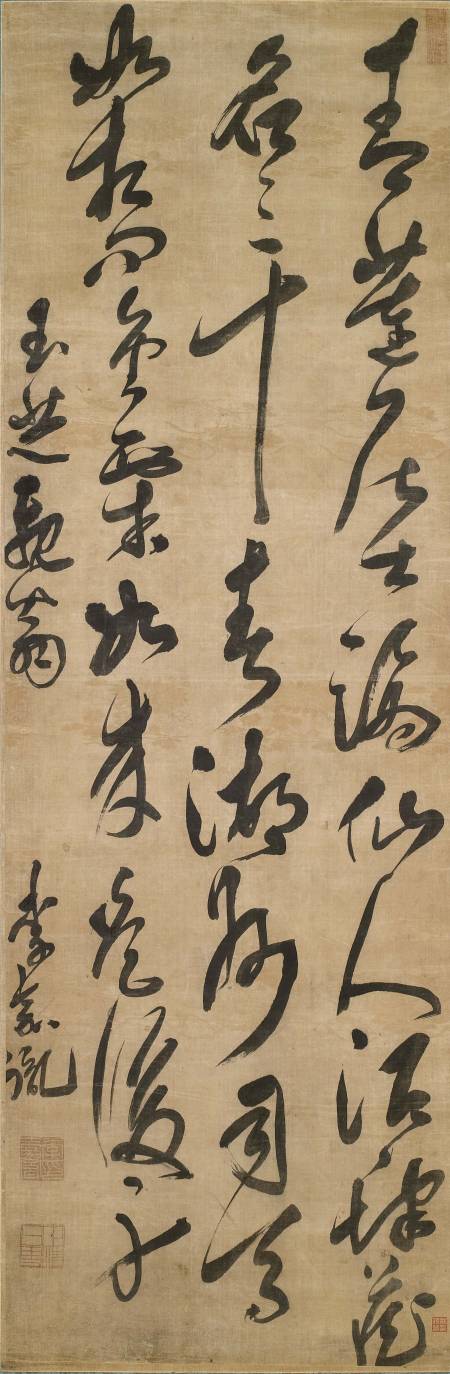 青蓮居士謫仙人酒肆藏
名三十春湖州司馬
如相問金粟如來是後身
玉芝親翁
李